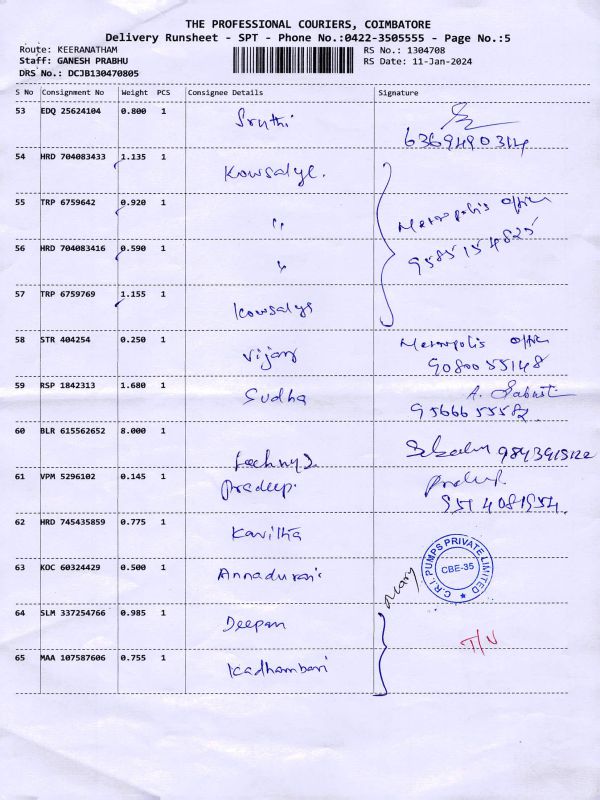 THE PROFESSIONAL COURIERS, COIMBATORE
Delivery Runsheet - SPT - Phone No.:0422-3505555 - Page No.:5
Route: KEERANATHAM
RS No.: 1304708
Staff: GANESH PRABHU
RS Date: 11-Jan-2024
DRS No.: DCJB130470805
S No Consignment No Weight PCS Consignee Details Signature
53 EDQ 25624104 0.800 1 Sruthi
6369490314
54 HRD 704083433 1.135 1 Kowsalye.
55 TRP 6759642 0.920 1 " Metropolis office
9585154825
56 HRD 704083416 0.590 1 "
57 TRP 6759769 1.155 1 Kowsalye
58 STR 404254 0.250 1 Vijay Metropolis office
9080055148
59 RSP 1842313 1.680 1 Sudha A.
9566655582
60 BLR 615562652 8.000 1
61 VPM 5296102 0.145 1 Pradeep.
62 HRD 745435859 0.775 1 Kavitha
63 KOC 60324429 0.500 1 Annadurai
C.R.I. PUMPS PRIVATE LIMITED
CBE-35
64 SLM 337254766 0.985 1 Deepan
65 MAA 107587606 0.755 1 Kadhambari